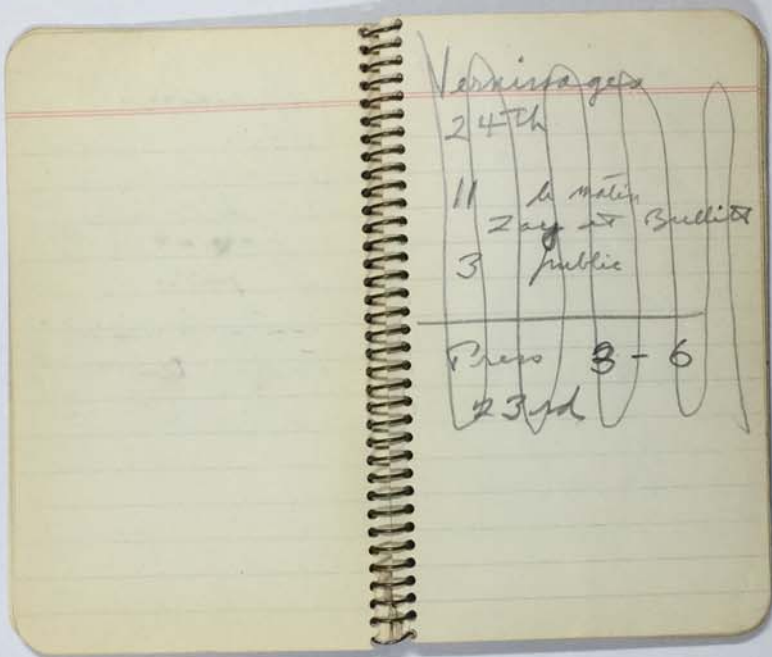 Vernissages
24th
11 le matin
Zay et Bullitt
3 public
Press 3 - 6
23rd